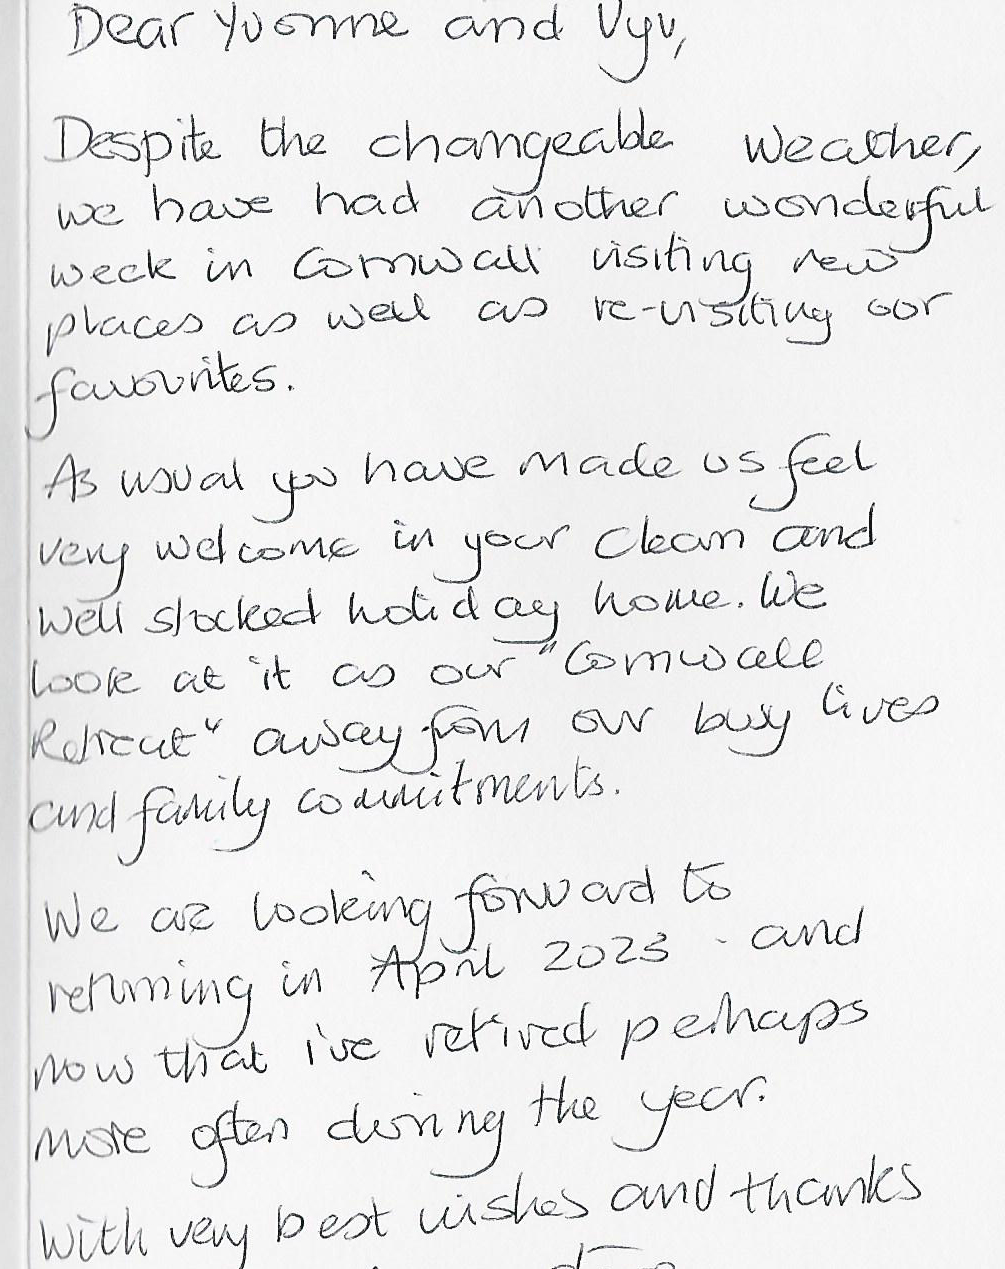 Dear Yvonne and Vyv,
Despite the changeable weather,
we have had another wonderful
week in Cornwall visiting new
places as well as re-visiting our
favourites.
As usual you have made us feel
very welcome in your clean and
well stocked holiday home. We
look at it as our "Cornwall
Retreat" away from our busy lives
and family commitments.
We are looking forward to
returning in April 2023 - and
now that i've retired perhaps
more often during the year.
With very best wishes and thanks